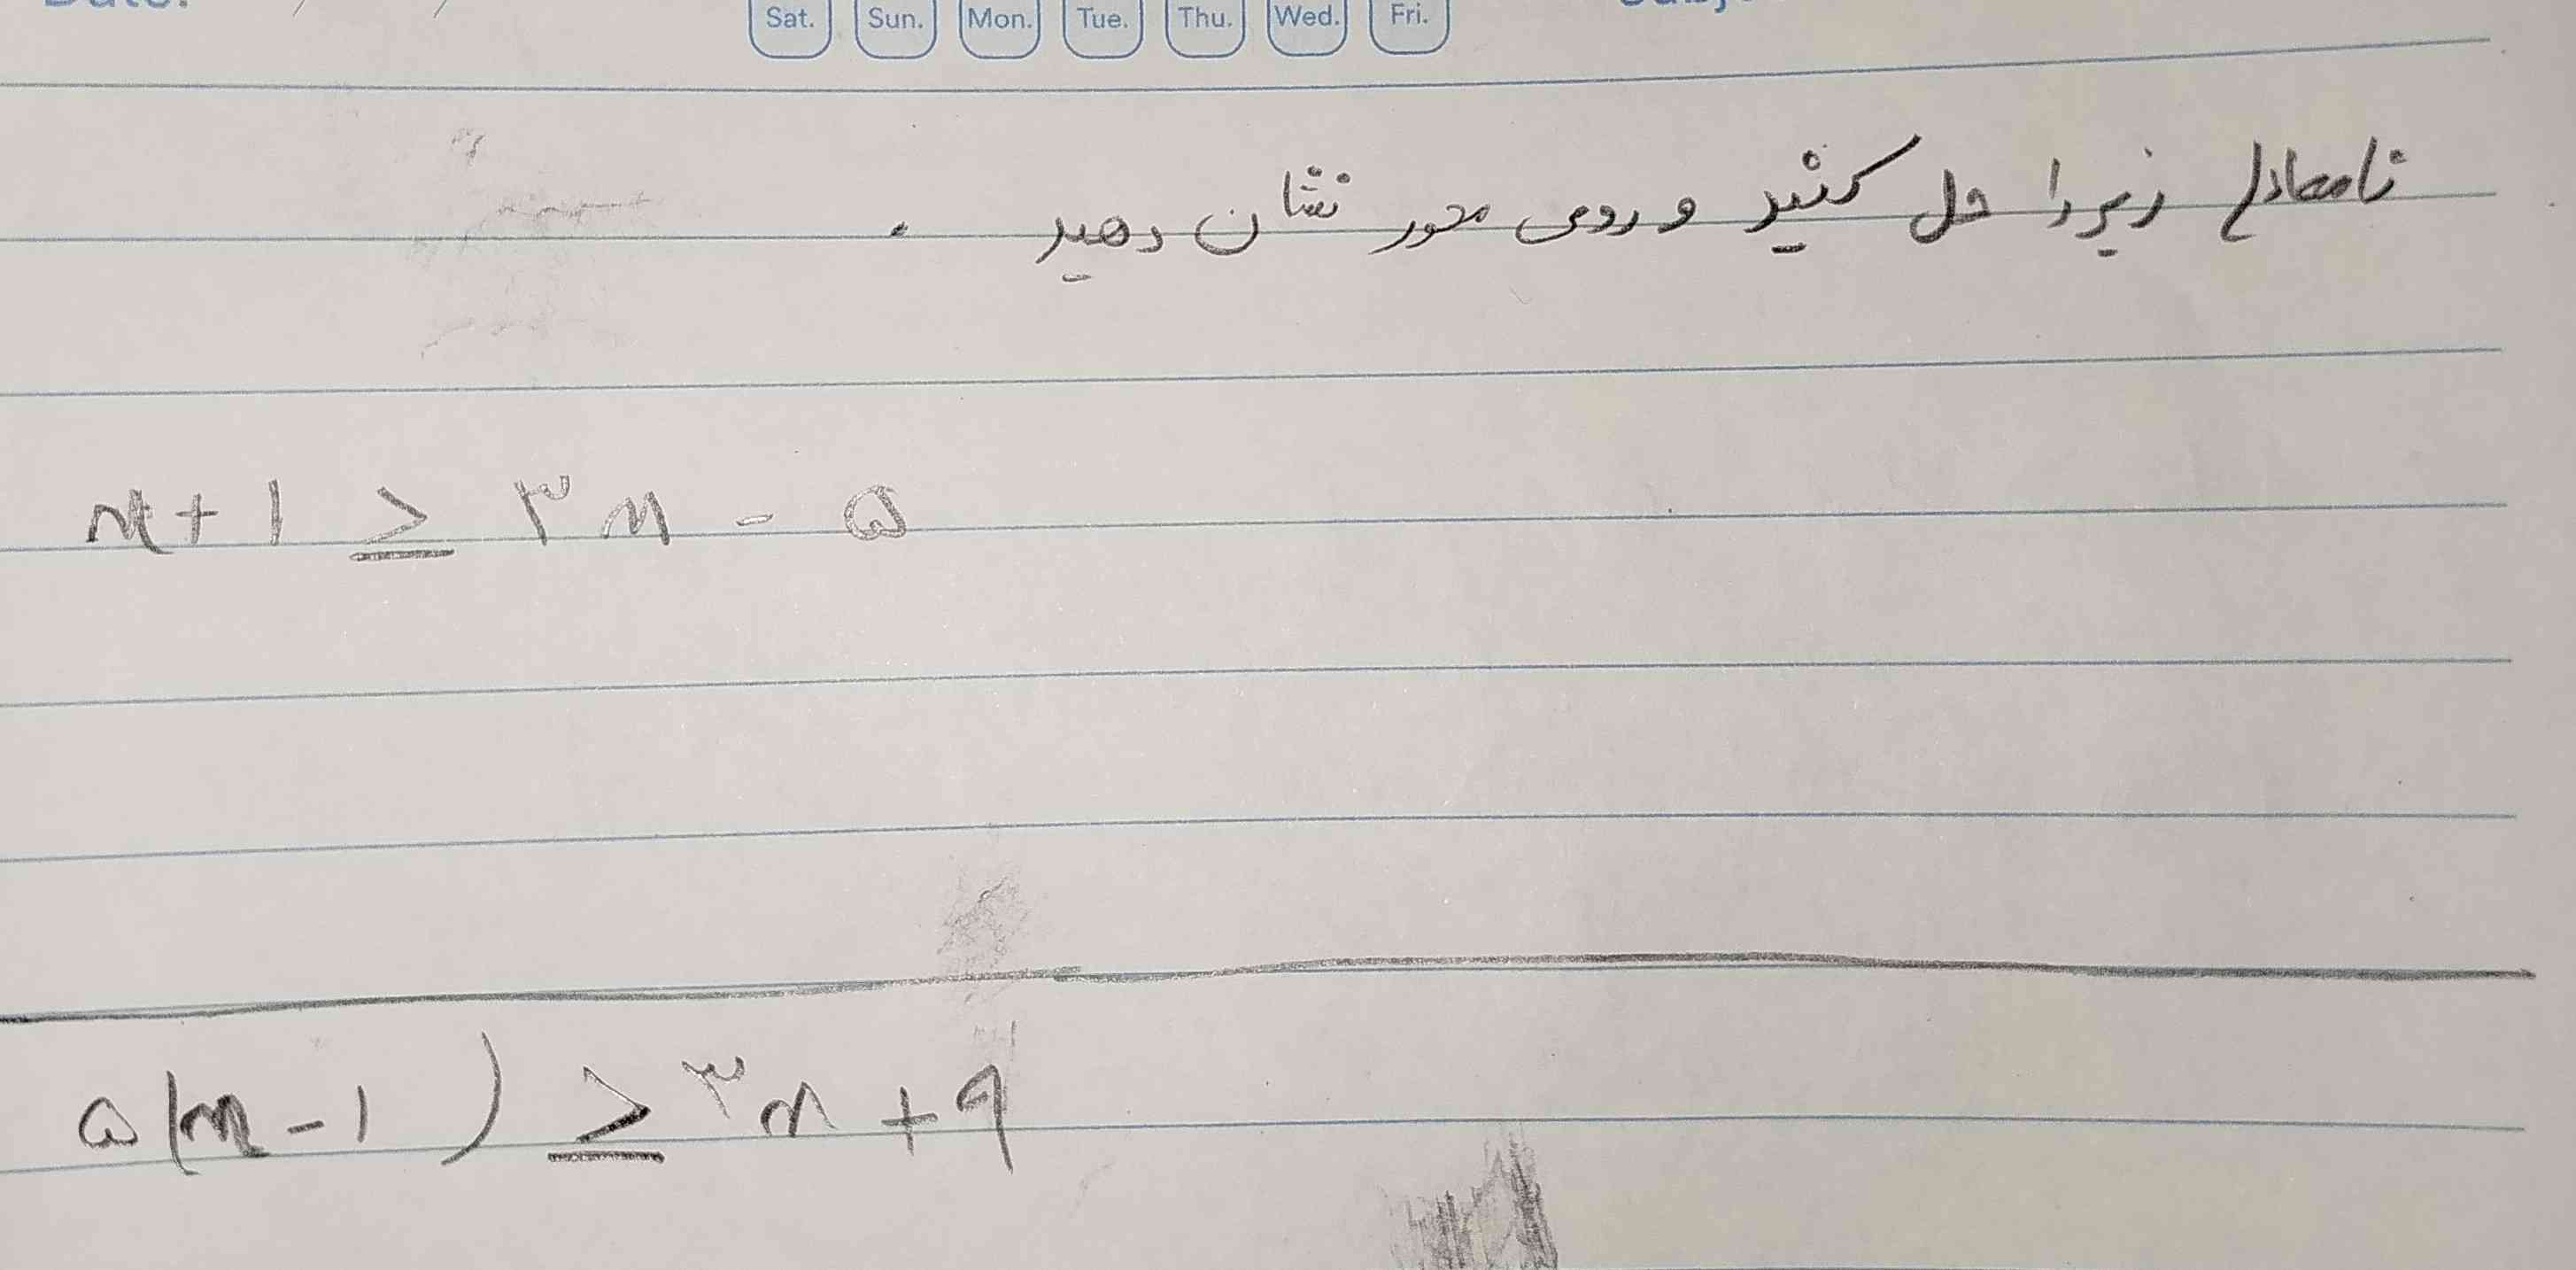 Sat. Sun. Mon. Tue. Thu. Wed. Fri.
نامعادله زیر را حل کنید و روی محور نشان دهید .
x + ۱ ≥ ۳x - ۵
۵(x - ۱) ≥ ۳x + ۹